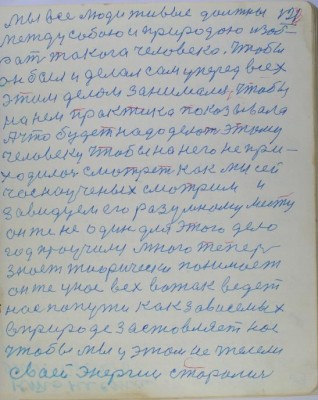 мы все люди живые должны 121
между собою и природою изоб
рать такога человека. Чтобы
он был и делал сам уперед всех
этим делом занимался, чтобы
на нем практика показывала
А что будет надо делат этому
человеку чтобы на него не при-
ходилос смотрет как мы сей
час на ученых смотрим и
завидуем его разумному месту
он же не один для этого дело
год проучили много тепер
знает теорически понимает
он же у нас всех вожак ведет
нас по пути как зависемых
в природе заставляет нас
чтобы мы у этом не жалели
сваей энергии старалис